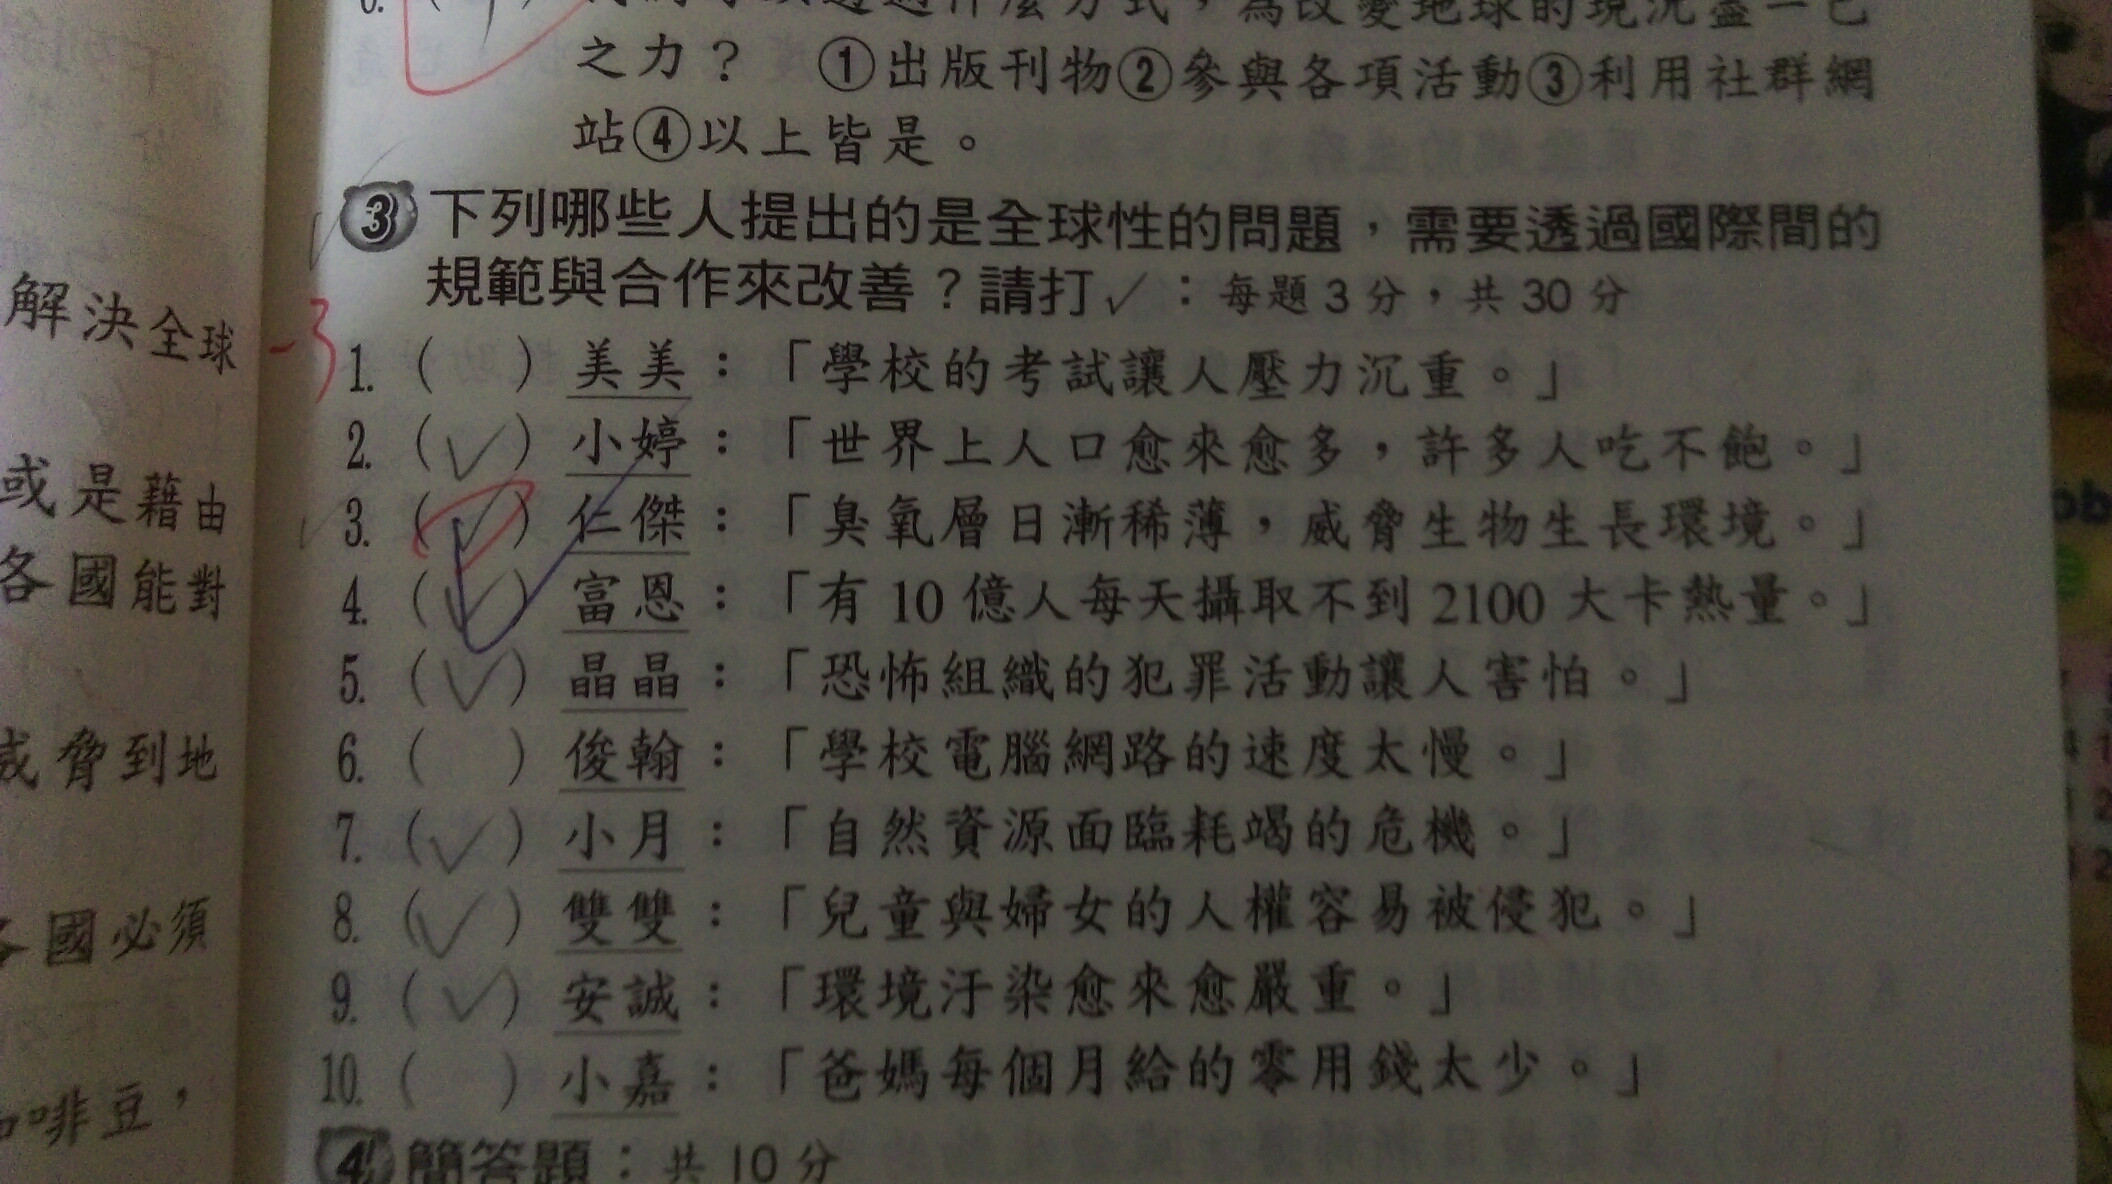 之力？ ①出版刊物②參與各項活動③利用社群網
站④以上皆是。
3 下列哪些人提出的是全球性的問題，需要透過國際間的
規範與合作來改善？請打✓：每題3分，共30分
-3
1. （ ）美美：「學校的考試讓人壓力沉重。」
2. （✓）小婷：「世界上人口愈來愈多，許多人吃不飽。」
3. （✓）仁傑：「臭氧層日漸稀薄，威脅生物生長環境。」
4. （✓）富恩：「有10億人每天攝取不到2100大卡熱量。」
5. （✓）晶晶：「恐怖組織的犯罪活動讓人害怕。」
6. （ ）俊翰：「學校電腦網路的速度太慢。」
7. （✓）小月：「自然資源面臨耗竭的危機。」
8. （✓）雙雙：「兒童與婦女的人權容易被侵犯。」
9. （✓）安誠：「環境汙染愈來愈嚴重。」
10. （ ）小嘉：「爸媽每個月給的零用錢太少。」
4 簡答題：共10分
解決全球
或是藉由
各國能對
威脅到地
國必須
啡豆，